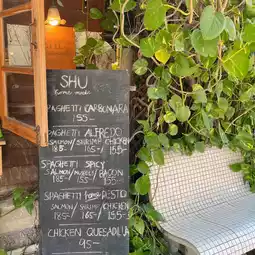 SHU
Home made
SPAGHETTI CARBONARA
155.-
SPAGHETTI ALFREDO
SALMON / SHRIMP / CHICKEN
185.- 165.- / 155.-
SPAGHETTI SPICY
SALMON / MUSSEL / BACON
185.- 155.- 155.-
SPAGHETTI PESTO
SALMON / SHRIMP / CHICKEN
185.- / 165.- / 155.-
CHICKEN QUESADILLA
95.-